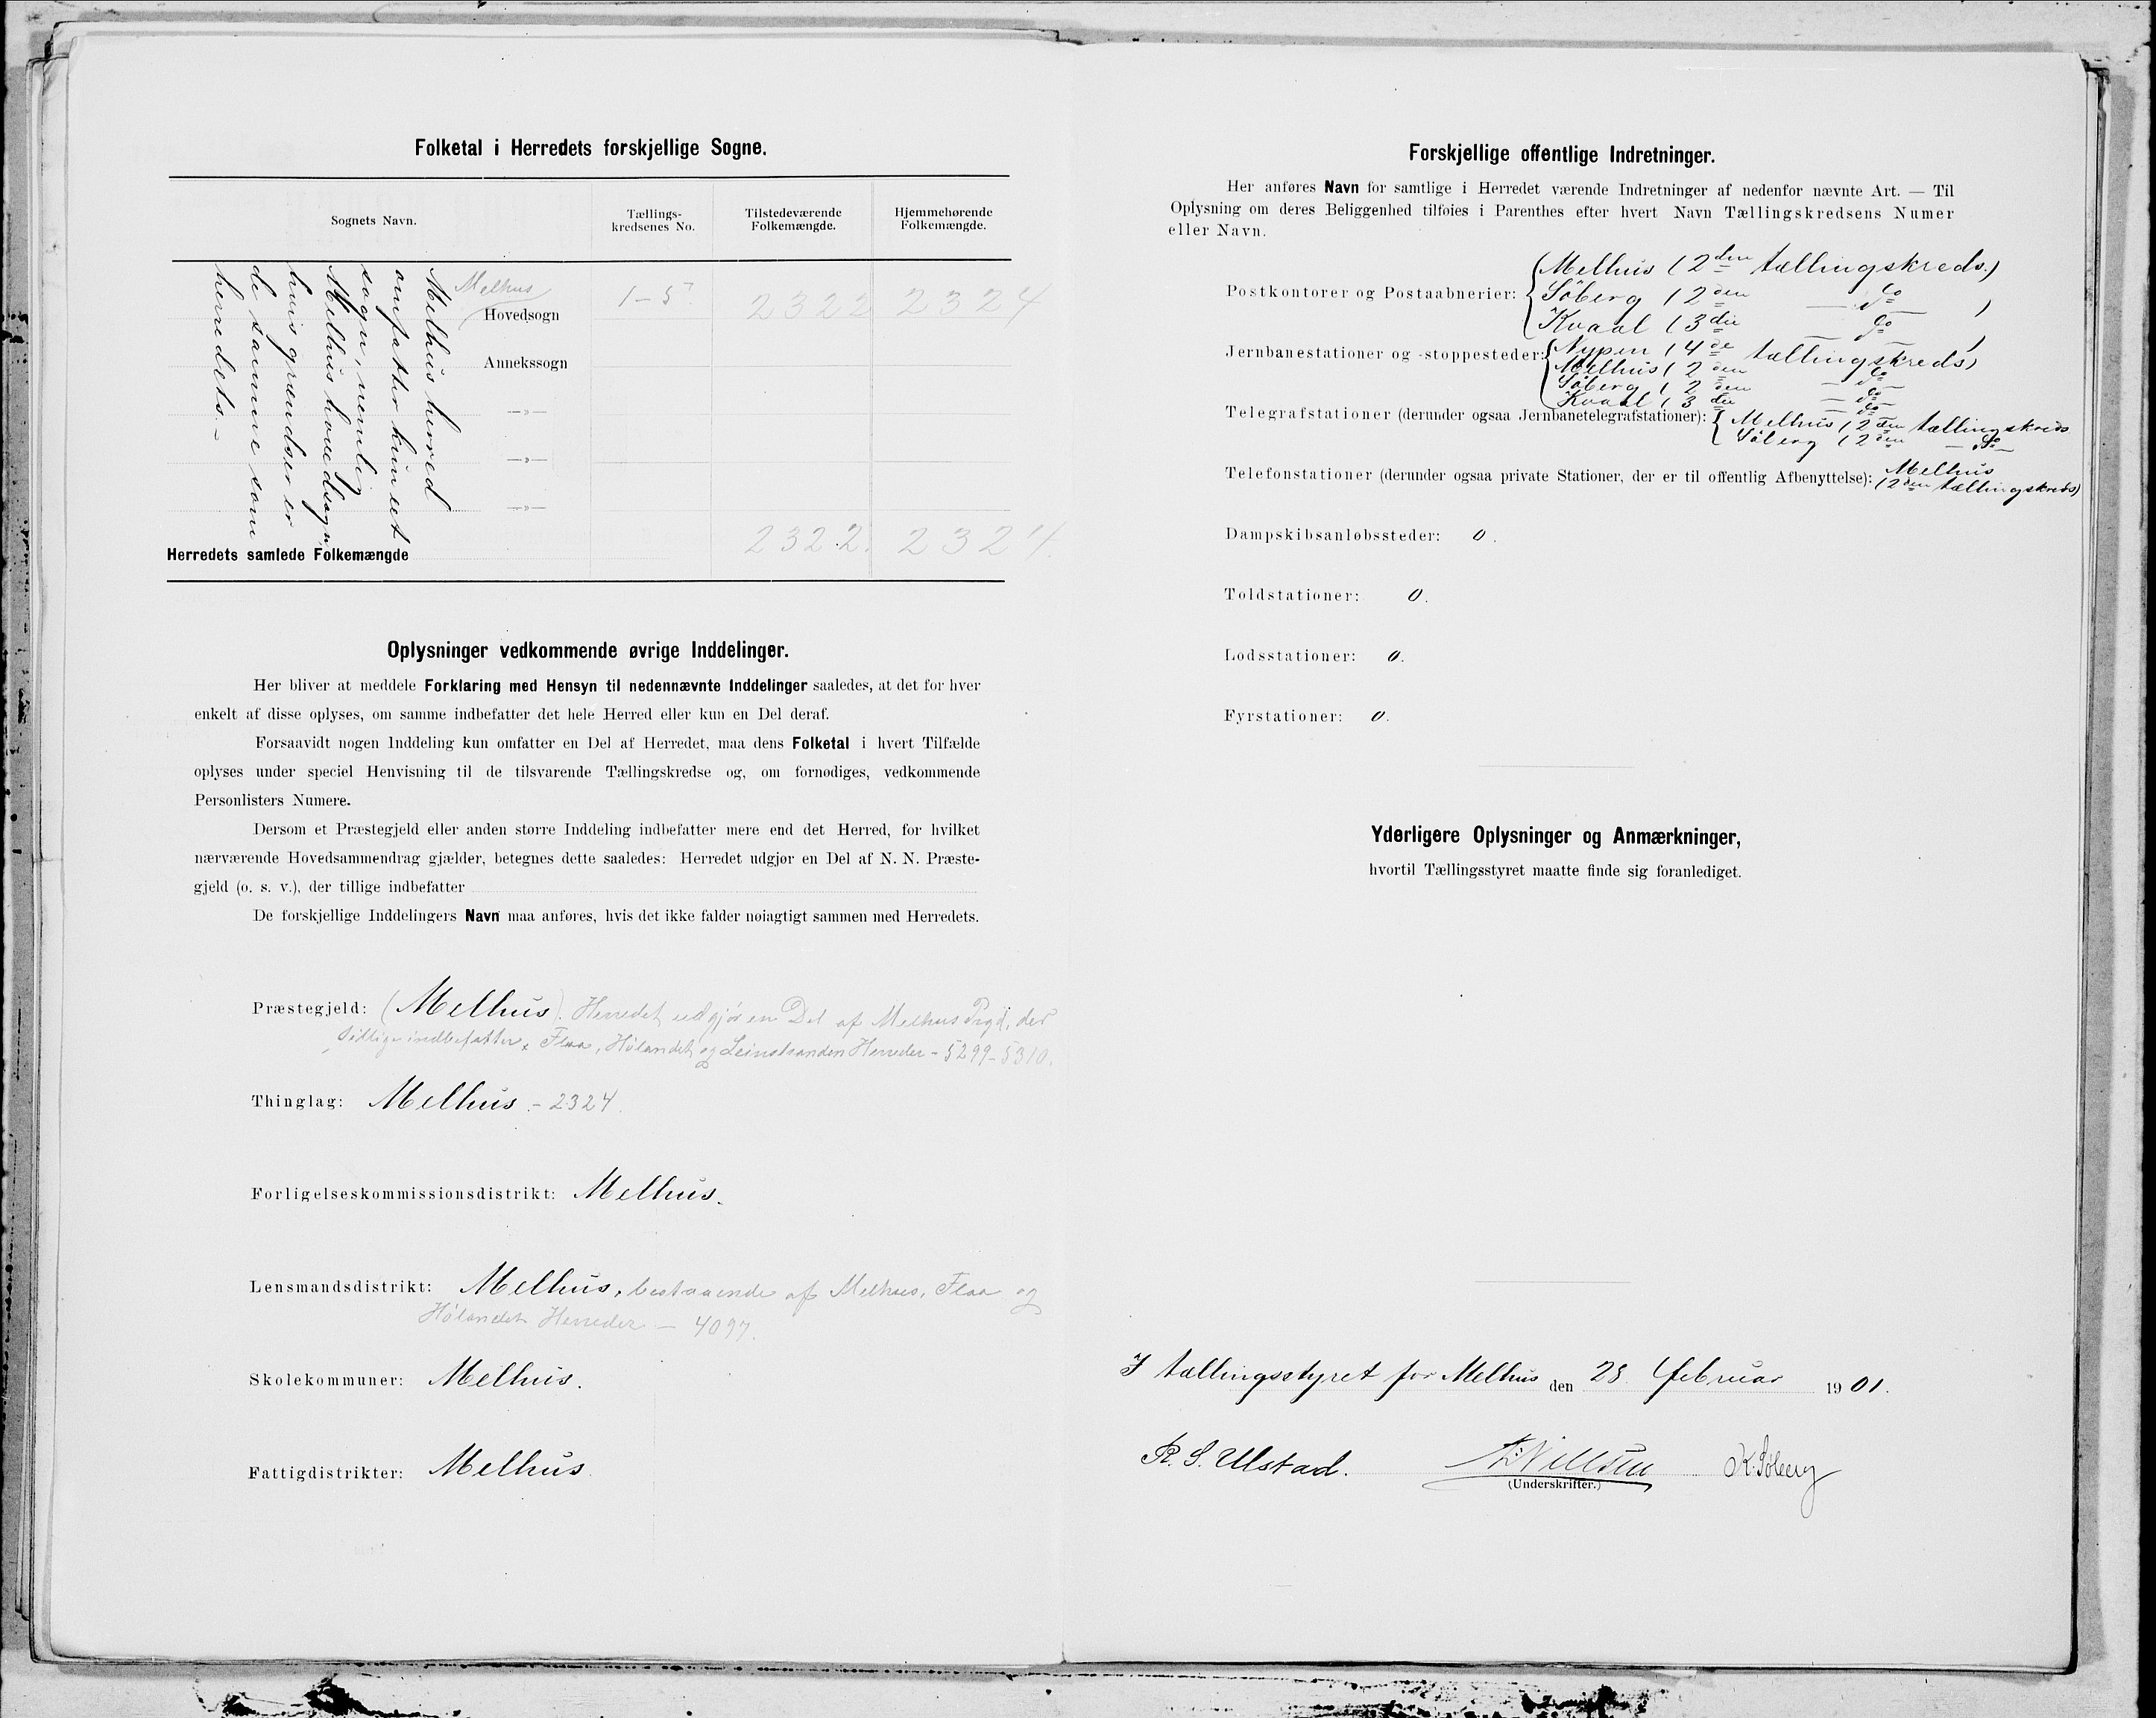 Folketal i Herredets forskjellige Sogne.
Sognets Navn.
Tællings-
kredsenes No.
Tilstedeværende
Folkemængde.
Hjemmehørende
Folkemængde.
Melhus herred
omfatter kun et
sogn, nemlig
Melhus hovedsogn
hvis grændser er
de samme som
herredets. -
Melhus
Hovedsogn 1-5 2322 2324
Annekssogn
—»—
—»—
—»—
Herredets samlede Folkemængde 2322. 2324.
Oplysninger vedkommende øvrige Inddelinger.
Her bliver at meddele Forklaring med Hensyn til nedennævnte Inddelinger saaledes, at det for hver
enkelt af disse oplyses, om samme indbefatter det hele Herred eller kun en Del deraf.
Forsaavidt nogen Inddeling kun omfatter en Del af Herredet, maa dens Folketal i hvert Tilfælde
oplyses under speciel Henvisning til de tilsvarende Tællingskredse og, om fornødiges, vedkommende
Personlisters Numere.
Dersom et Præstegjeld eller anden større Inddeling indbefatter mere end det Herred, for hvilket
nærværende Hovedsammendrag gjælder, betegnes dette saaledes: Herredet udgjør en Del af N. N. Præste-
gjeld (o. s. v.), der tillige indbefatter
De forskjellige Inddelingers Navn maa anføres, hvis det ikke falder nøiagtigt sammen med Herredets.
Præstegjeld: (Melhus). Herredet udgjør en Del af Melhus Prgd, der
tillige indbefatter Flaa, Hølandet og Leinstranden Herreder - 5299 - 5310.
Thinglag: Melhus. - 2324.
Forligelseskommissionsdistrikt: Melhus.
Lensmandsdistrikt: Melhus, bestaaende af Melhus, Flaa og
Hølandet Herreder — 4097.
Skolekommuner: Melhus.
Fattigdistrikter: Melhus.
Forskjellige offentlige Indretninger.
Her anføres Navn for samtlige i Herredet værende Indretninger af nedenfor nævnte Art. — Til
Oplysning om deres Beliggenhed tilføies i Parenthes efter hvert Navn Tællingskredsens Numer
eller Navn.
Postkontorer og Postaabnerier: Melhus (2den tællingskreds.)
Söberg (2den — do — )
Kvaal (3die — do — )
Jernbanestationer og -stoppesteder: Nypen (4de tællingskreds)
Melhus (2den — do —
Söberg (2den — do —
Kvaal (3die — do —
Telegrafstationer (derunder ogsaa Jernbanetelegrafstationer): Melhus (2den tællingskreds
Söberg (2den — do —
Telefonstationer (derunder ogsaa private Stationer, der er til offentlig Afbenyttelse): Melhus
(2den tællingskreds)
Dampskibsanløbssteder: 0.
Toldstationer: 0.
Lodsstationer: 0.
Fyrstationer: 0.
Yderligere Oplysninger og Anmærkninger,
hvortil Tællingsstyret maatte finde sig foranlediget.
I tællingsstyret for Melhus den 28. Februar 1901.
R. S. Ulstad. K. Söberg
(Underskrifter.)